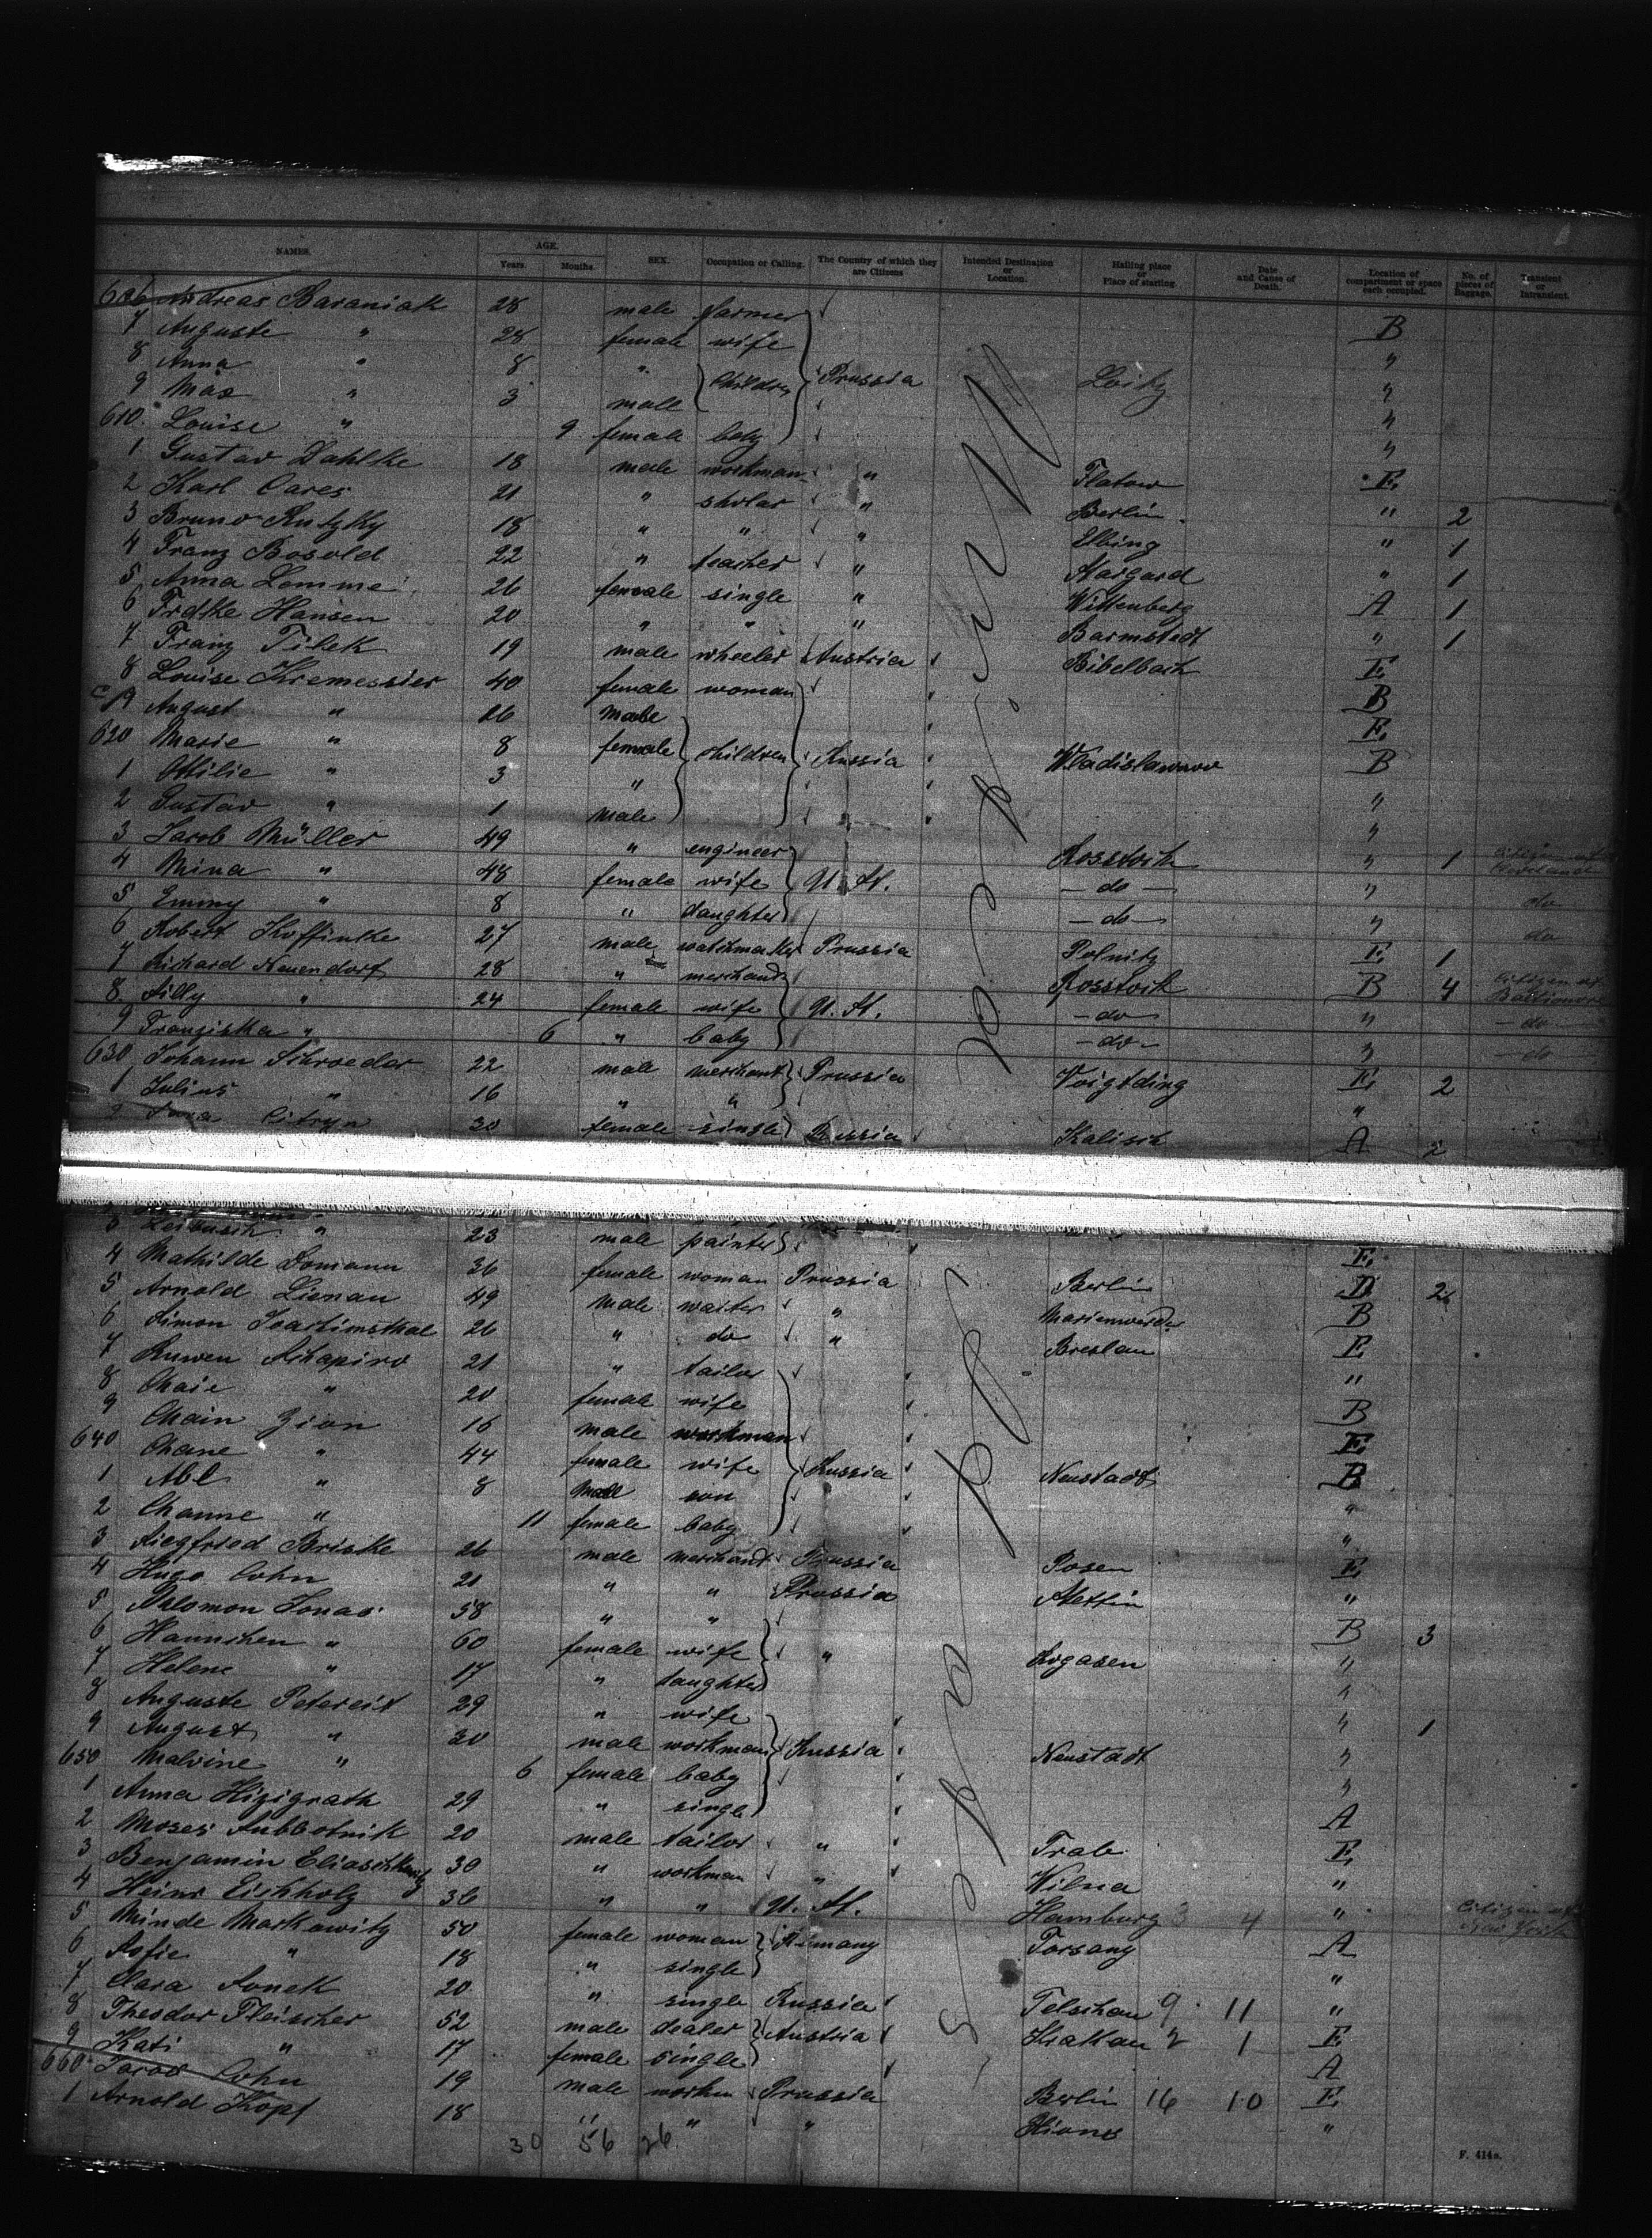 NAMES. AGE. Years. Months. SEX. Occupation or Calling. The Country of which they are Citizens Intended Destination or Location. Hailing place or Place of starting. Date and Cause of Death. Location of compartment or space each occupied. No. of pieces of Baggage. Transient or Intransient.
606 Andreas Baraniak 28 male farmer
7 Auguste " 28 female wife B
8 Anna " 8 " children Prussia Loitz "
9 Max " 3 male "
610. Louise " 9 female baby "
1 Gustav Dahlke 18 male workman " Flatow E
2 Karl Cares 21 " sholar " Berlin " 2
3 Bruno 18 " " " Elbing " 1
4 Franz Bosold 22 " teacher " Stargard " 1
5 Anna Lemme 26 female single " Wittenberg A 1
6 Frdke Hansen 20 " " " Barmstedt " 1
7 Franz Tilek 19 male wheeler Austria Bibelbach E
8 Louise Kremessier 40 female woman B
9 August " 26 male E
620 Marie " 8 female children Russia Wladislawow B
1 Ottilie " 3 " "
2 Gustav " 1 male "
3 Jacob Müller 49 " engineer Rosstock " 1
4 Mina " 48 female wife U. St. - do - " do
5 Emmy " 8 " daughter - do - " do
6 Robert Koffinke 27 male watchmaker Prussia Polnitz E 1
7 Richard Neuendorf 28 " merchant Rosstock B 4 citizen of Baltimore
8. Lilly " 24 female wife U. St. - do - " do
9 Franziska " 6 " baby - do - " - do
630 Johann Schroeder 22 male merchant Prussia Voigtding E 2
1 Julius " 16 " " "
2 Citryn 30 female single Russia Kalisch A 2
3 " 23 male painter E
4 Mathilde Domann 36 female woman Prussia Berlin B 2
5 Arnold Lienau 49 male waiter " Marienwerder B
6 Simon Joachimsthal 26 " do " Breslau E
7 Ruwen Schapiro 21 " tailor "
8 Chaie " 20 female wife B
9 Chain Zion 16 male workman E
640 Chane " 44 female wife Russia Neustadt B
1 Abl " 8 male son "
2 Channe " 11 female baby "
3 Siegfried Briske 26 male merchant Prussia Posen E
4 Hugo Cohn 21 " " Prussia Stettin "
5 Salomon Jonas 58 " " B 3
6 Hannchen " 60 female wife " Rogasen "
7 Helene " 17 " daughter "
8 Auguste Petereit 29 " wife " 1
9 August " 30 male workman Russia Neustadt "
650 Malvine " 6 female baby "
1 Anna Hizigrath 29 " single A
2 Moses Subbotnik 20 male tailor " Trab E
3 Benjamin 30 " workman " Wilna "
4 Heinr Eichholz 36 " " U. St. Hamburg 3 4 " citizen of New York
5 Minde Markowitz 50 female woman Torsang A
6 Sofie " 18 " single "
7 Clara Sonek 20 " single Russia Telschau 9 11 "
8 Theodor Fleischer 52 male dealer Austria Krakau 2 1 E
9 Kati " 17 female single A
660 Jacob Cohn 19 male Prussia Berlin 16 10 E
1 Arnold Kopf 18 " " " "
30 56 26
F. 414a.